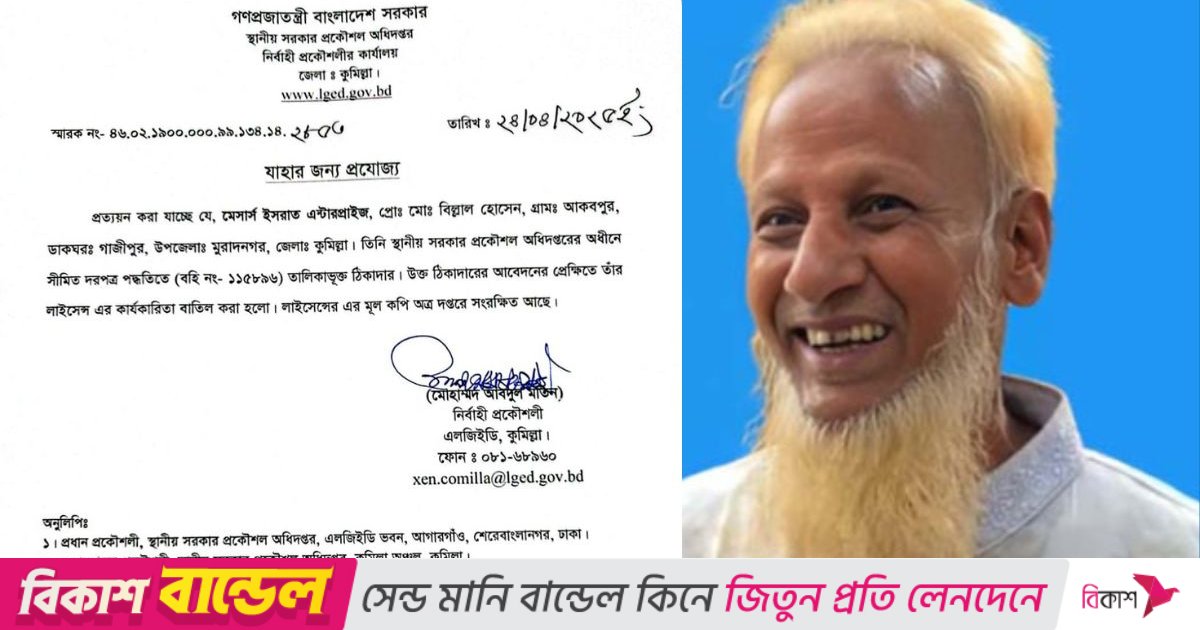 গণপ্রজাতন্ত্রী বাংলাদেশ সরকার
স্থানীয় সরকার প্রকৌশল অধিদপ্তর
নির্বাহী প্রকৌশলীর কার্যালয়
জেলা ঃ কুমিল্লা।
www.lged.gov.bd
স্মারক নং- ৪৬.০২.১৯০০.০০০.৯৯.১৩৪.১৪.
তারিখ ঃ ২৪/০৪/২০২৫ইং
যাহার জন্য প্রযোজ্য
প্রত্যয়ন করা যাচ্ছে যে, মেসার্স ইসরাত এন্টারপ্রাইজ, প্রোঃ মোঃ বিল্লাল হোসেন, গ্রামঃ আকবপুর,
ডাকঘরঃ গাজীপুর, উপজেলাঃ মুরাদনগর, জেলাঃ কুমিল্লা। তিনি স্থানীয় সরকার প্রকৌশল অধিদপ্তরের অধীনে
সীমিত দরপত্র পদ্ধতিতে (বহি নং- ১১৫৮৯৬) তালিকাভূক্ত ঠিকাদার। উক্ত ঠিকাদারের আবেদনের প্রেক্ষিতে তাঁর
লাইসেন্স এর কার্যকারিতা বাতিল করা হলো। লাইসেন্সের এর মূল কপি অত্র দপ্তরে সংরক্ষিত আছে।
(মোহাম্মদ আবদুল মতিন)
নির্বাহী প্রকৌশলী
এলজিইডি, কুমিল্লা।
ফোন ঃ ০৮১-৬৮৯৬০
xen.comilla@lged.gov.bd
অনুলিপিঃ
১। প্রধান প্রকৌশলী, স্থানীয় সরকার প্রকৌশল অধিদপ্তর, এলজিইডি ভবন, আগারগাঁও, শেরেবাংলানগর, ঢাকা।
বিকাশ বান্ডেল সেন্ড মানি বান্ডেল কিনে জিতুন প্রতি লেনদেনে বিকাশ